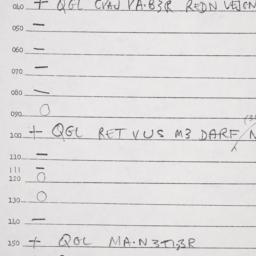 040 + QGL CVAJ VA·B3R REDN VEJCN
050 –
060 –
070 –
080 –
090 O
100 + QGL RET VUS M3 DARF/N
110 –
111 –
120 O
130 O
140 –
150 + QGL MA·N3TI3R